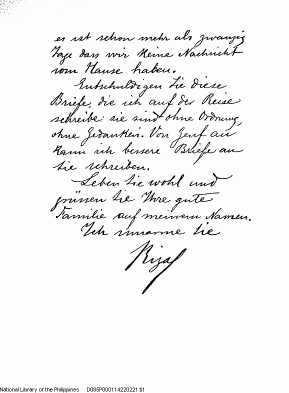 es ist schon mehr als zwanzig
Tage dass wir keine Nachricht
vom Hause haben.
Entschuldigen Sie diese
Briefe, die ich auf der Reise
schreibe: sie sind ohne Ordnung,
ohne Gedanken. Von Genf aus
kann ich bessere Briefe an
Sie schreiben.
Leben Sie wohl und
grüssen Sie Ihre gute
Familie auf meinem Namen.
Ich umarme Sie
Rizal
National Library of the Philippines